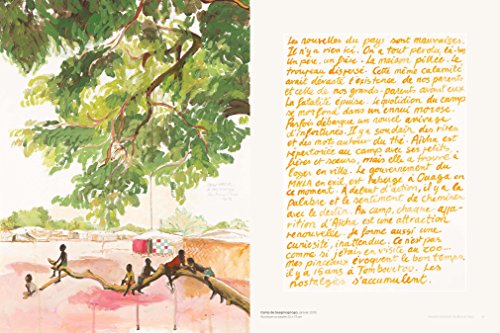 Les nouvelles du pays sont mauvaises.
Il n'y a rien ici. On a tout perdu là-bas.
Un père, un frère. La maison pillée. Le
troupeau dispersé. Cette même calamité
avait dévasté l'existence de nos parents
et celle de nos grands-parents avant eux.
La fatalité épuise. Le quotidien du camp
se morfond dans un ennui morose
parfois débarque un nouvel arrivage
d'infortunes. Il y a soudain des rires
et des mots autour du thé. Aïcha est
répertoriée au camp avec ses petits,
frères et sœurs, mais elle a trouvé à
loger en ville. Le gouvernement du
MNLA en exil, est hébergé à Ouaga en
ce moment. A défaut d'action, il y a la
palabre et le sentiment de cheminer
avec le destin. Au camp, chaque appa-
rition d'Aïcha est une attraction
renouvelée. Je forme aussi une
curiosité, inattendue. Ce n'est pas
comme si j'étais en visite au zoo...
mes pinceaux évoquent le bon temps,
il y a 15 ans à Tombouctou. Les
nostalgies s'accumulent.
Camp de Goudoubo
janvier 2013